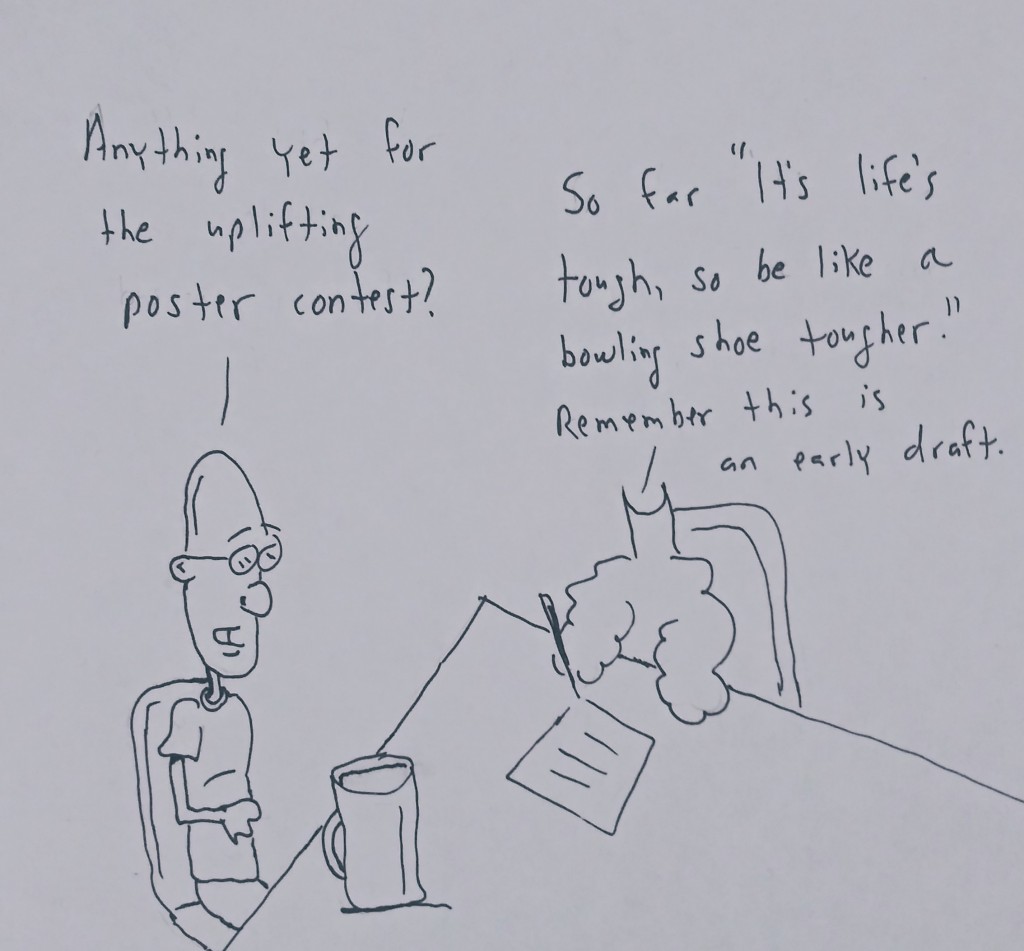 Anything yet for
the uplifting
poster contest?
So far "It's life's
tough, so be like a
bowling shoe tougher."
Remember this is
an early draft.